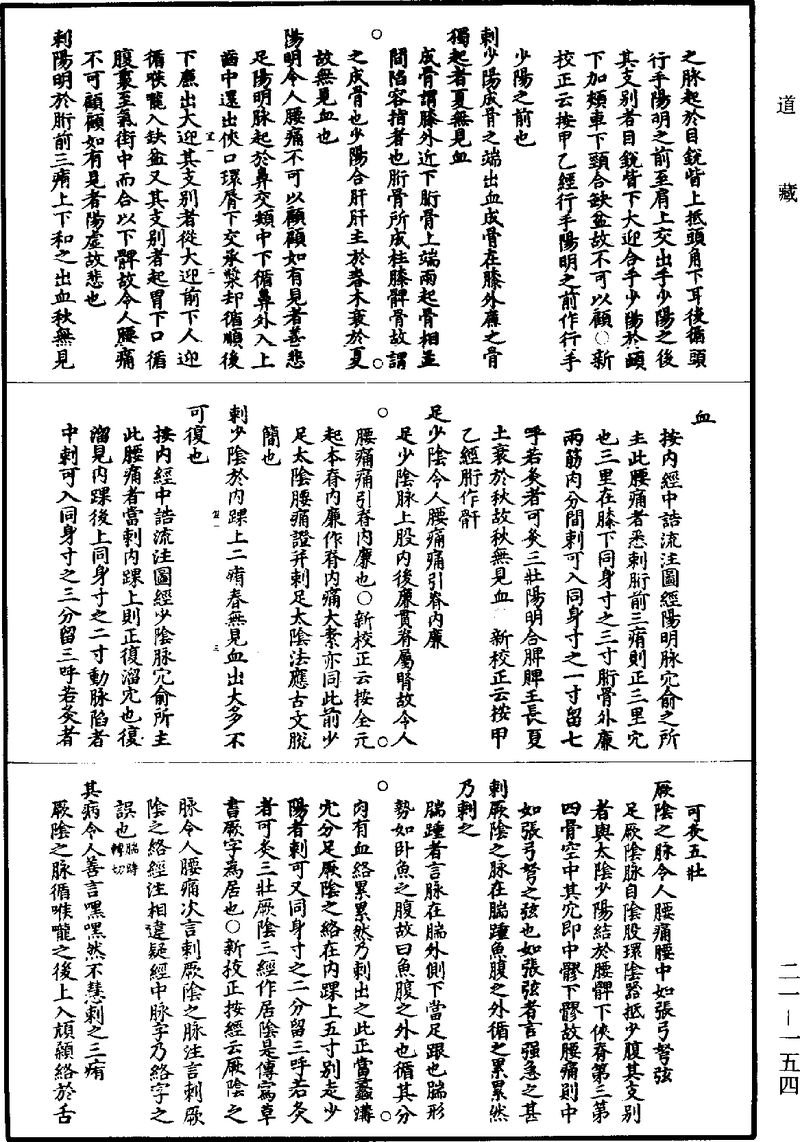 道藏
之脉起於目銳眥上抵頭角下耳後循頸
行手陽明之前至肩上交出手少陽之後
其支別者目銳眥下大迎合手少陽於䪼
下加頰車下頸合缺盆故不可以顧○新
校正云按甲乙經行手陽明之前作行手
少陽之前也
刺少陽成骨之端出血成骨在膝外廉之骨
獨起者夏無見血
成骨謂膝外近下胻骨上端兩起骨相並
間陷容指者也胻骨所成柱膝髀骨故謂
之成骨也少陽合肝肝王於春木衰於夏
故無見血也
陽明令人腰痛不可以顧顧如有見者善悲
足陽明脉起於鼻交頞中下循鼻外入上
齒中還出俠口環脣下交承漿却循頤後
下廉出大迎其支別者從大迎前下人迎
循喉嚨入缺盆又其支別者起胃下口循
腹裏至氣街中而合以下髀故令人腰痛
不可顧顧如有見者陽虛故悲也
刺陽明於胻前三痏上下和之出血秋無見
血
按內經中誥流注圖經陽明脉穴俞之所
主此腰痛者悉刺胻前三痏則正三里穴
也三里在膝下同身寸之三寸胻骨外廉
兩筋內分間刺可入同身寸之一寸留七
呼若灸者可灸三壯陽明合脾脾王長夏
土衰於秋故秋無見血 新校正云按甲
乙經胻作骭
足少陰令人腰痛痛引脊內廉
足少陰脉上股內後廉貫脊屬腎故令人
腰痛痛引脊內廉也○新校正云按全元
起本脊內廉作脊內痛大素亦同此前少
足太陰腰痛證并刺足太陰法應古文脫
簡也
刺少陰於內踝上二痏春無見血出大多不
可復也
按內經中誥流注圖經少陰脉穴俞所主
此腰痛者當刺內踝上則正復溜穴也復
溜見內踝後上同身寸之二寸動脉陷者
中刺可入同身寸之三分留三呼若灸者
可灸五壯
厥陰之脉令人腰痛腰中如張弓弩弦
足厥陰脉自陰股環陰器抵少腹其支別
者與太陰少陽結於腰髁下俠脊第三第
四骨空中其穴即中髎下髎故腰痛則中
如張弓弩之弦也如張弦者言强急之甚
刺厥陰之脉在腨踵魚腹之外循之累累然
乃刺之
腨踵者言脉在腨外側下當足跟也腨形
勢如卧魚之腹故曰魚腹之外也循其分
肉有血絡累累然乃刺出之此正當蠡溝
穴分足厥陰之絡在內踝上五寸別走少
陽者刺可又同身寸之二分留三呼若灸
者可灸三壯厥陰三經作居陰是傳寫草
書厥字為居也○新校正按經云厥陰之
脉令人腰痛次言刺厥陰之脉注言刺厥
陰之絡經注相違疑經中脉字乃絡字之
誤也腨時轉切
其病令人善言嘿嘿然不慧刺之三痏
厥陰之脉循喉嚨之後上入頏顙絡於舌
二一—一五四